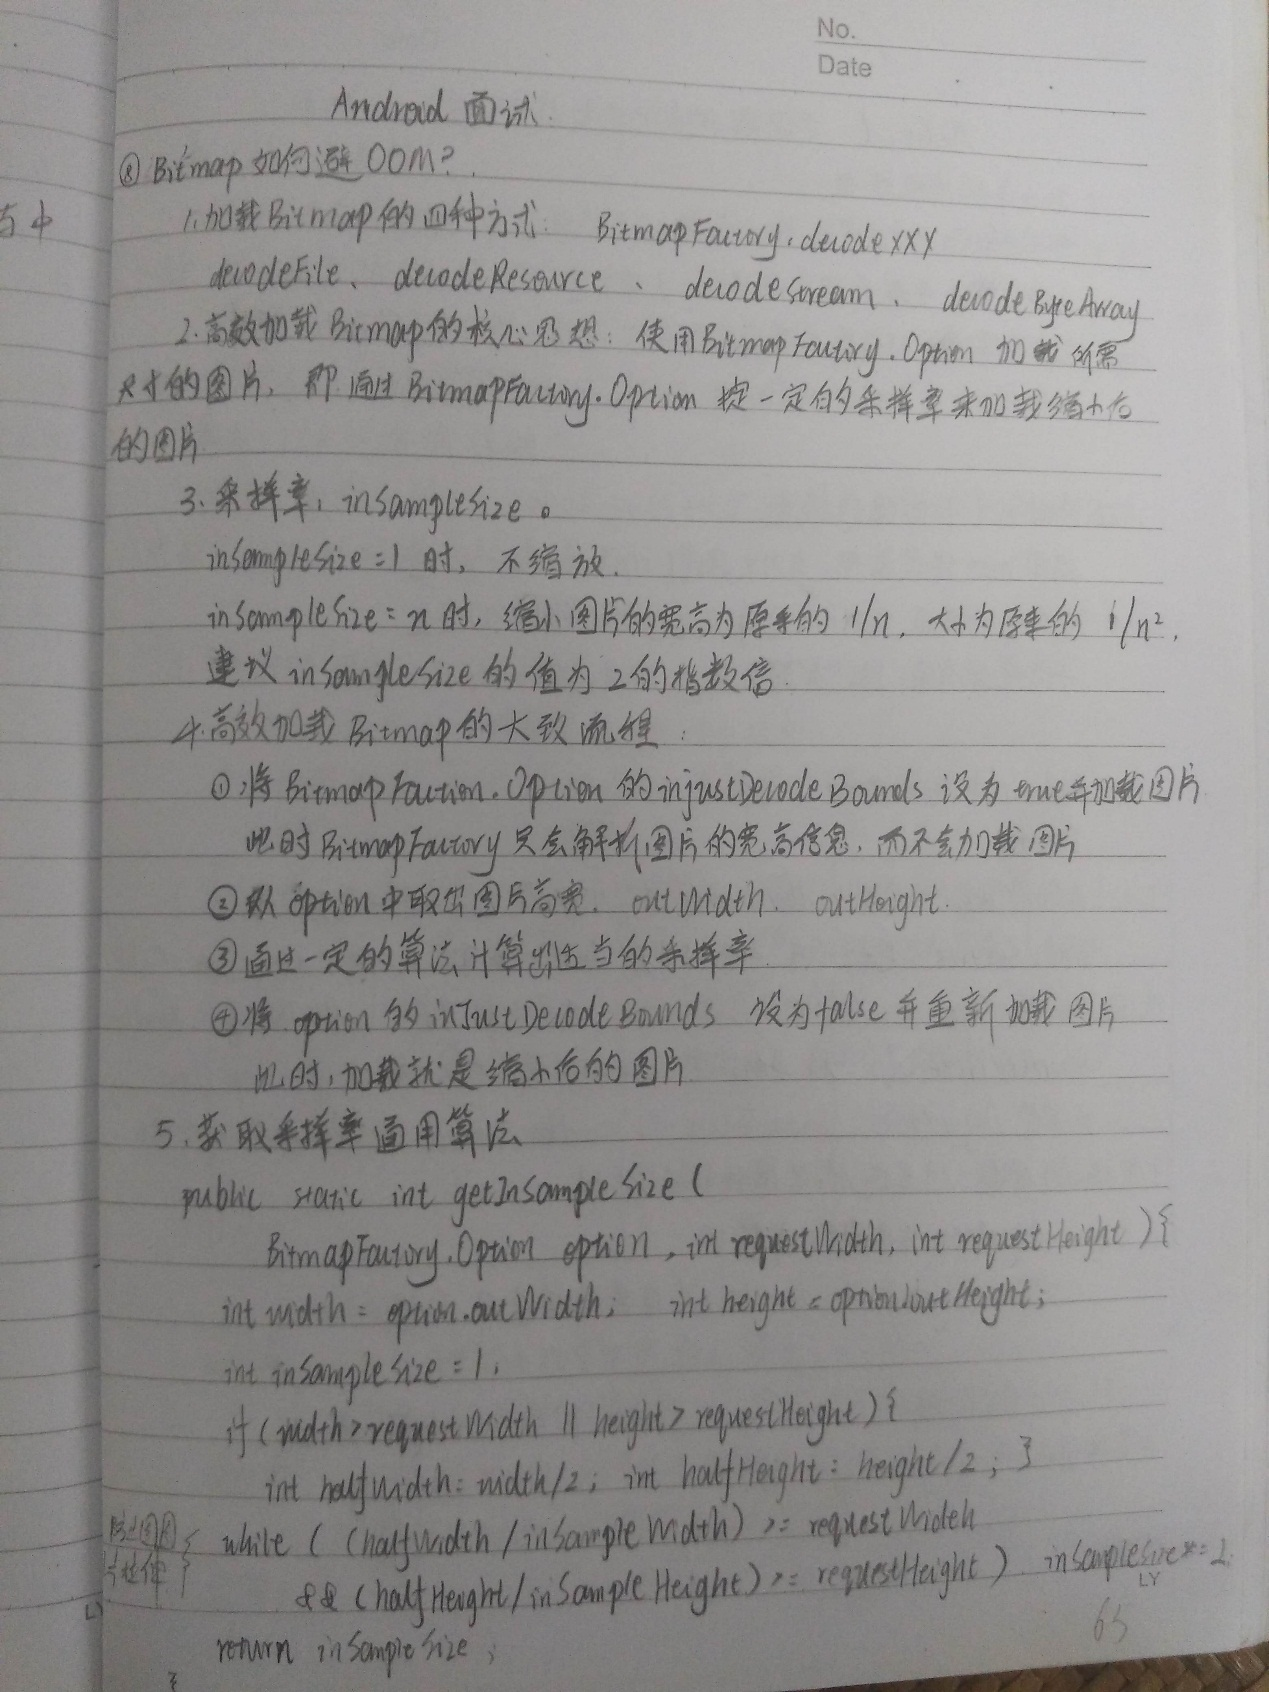 No.
Date
Android 面试.
⑧ Bitmap 如何避 OOM?
1.加载Bitmap的四种方式: BitmapFactory.decodeXXX
decodeFile、decodeResource、decodeStream、decodeByteArray
2.高效加载Bitmap的核心思想:使用BitmapFactory.Option 加载所需
尺寸的图片,即通过BitmapFactory.Option 按一定的采样率来加载缩小后
的图片
3.采样率: inSampleSize。
inSampleSize=1 时,不缩放.
inSampleSize=n时,缩小图片的宽高为原来的 1/n,大小为原来的 1/n²,
建议 inSampleSize 的值为 2的指数倍.
4.高效加载 Bitmap的大致流程:
①将BitmapFaction.Option 的injustDecodeBounds 设为true并加载图片
此时BitmapFactory只会解析图片的宽高信息,而不会加载图片
②从 option中取出图片高宽. outWidth. outHeight.
③通过一定的算法计算出适当的采样率.
④将 option 的 inJustDecodeBounds 设为false并重新加载图片
此时,加载就是缩小后的图片
5.获取采样率通用算法
public static int getInSampleSize (
BitmapFactory.Option option, int requestWidth, int requestHeight ){
int width = option.outWidth; int height = option.outHeight;
int inSampleSize = 1;
if (width > requestWidth || height > requestHeight) {
int halfWidth = width/2; int halfHeight = height/2; }
while ( (halfWidth / inSampleWidth) >= requestWidth
&& (halfHeight / inSampleHeight) >= requestHeight ) inSampleSize *= 2;
return inSampleSize;
}
LY
65